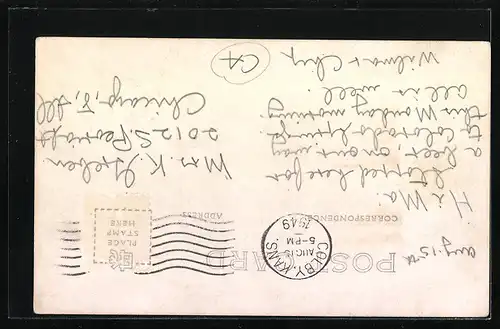 POST CARD
Aug. 15th
COLBY, KANS.
AUG 15
5-PM
1949
CORRESPONDENCE
ADDRESS
PLACE
STAMP
HERE
Hi Ma:
Stopped here for
a beer, on our way
to Colorado Springs.
this Monday morning.
all is well.
Wilmar Chip
Mrs. K.
2012 S. Peoria St
Chicago, 8, Ill